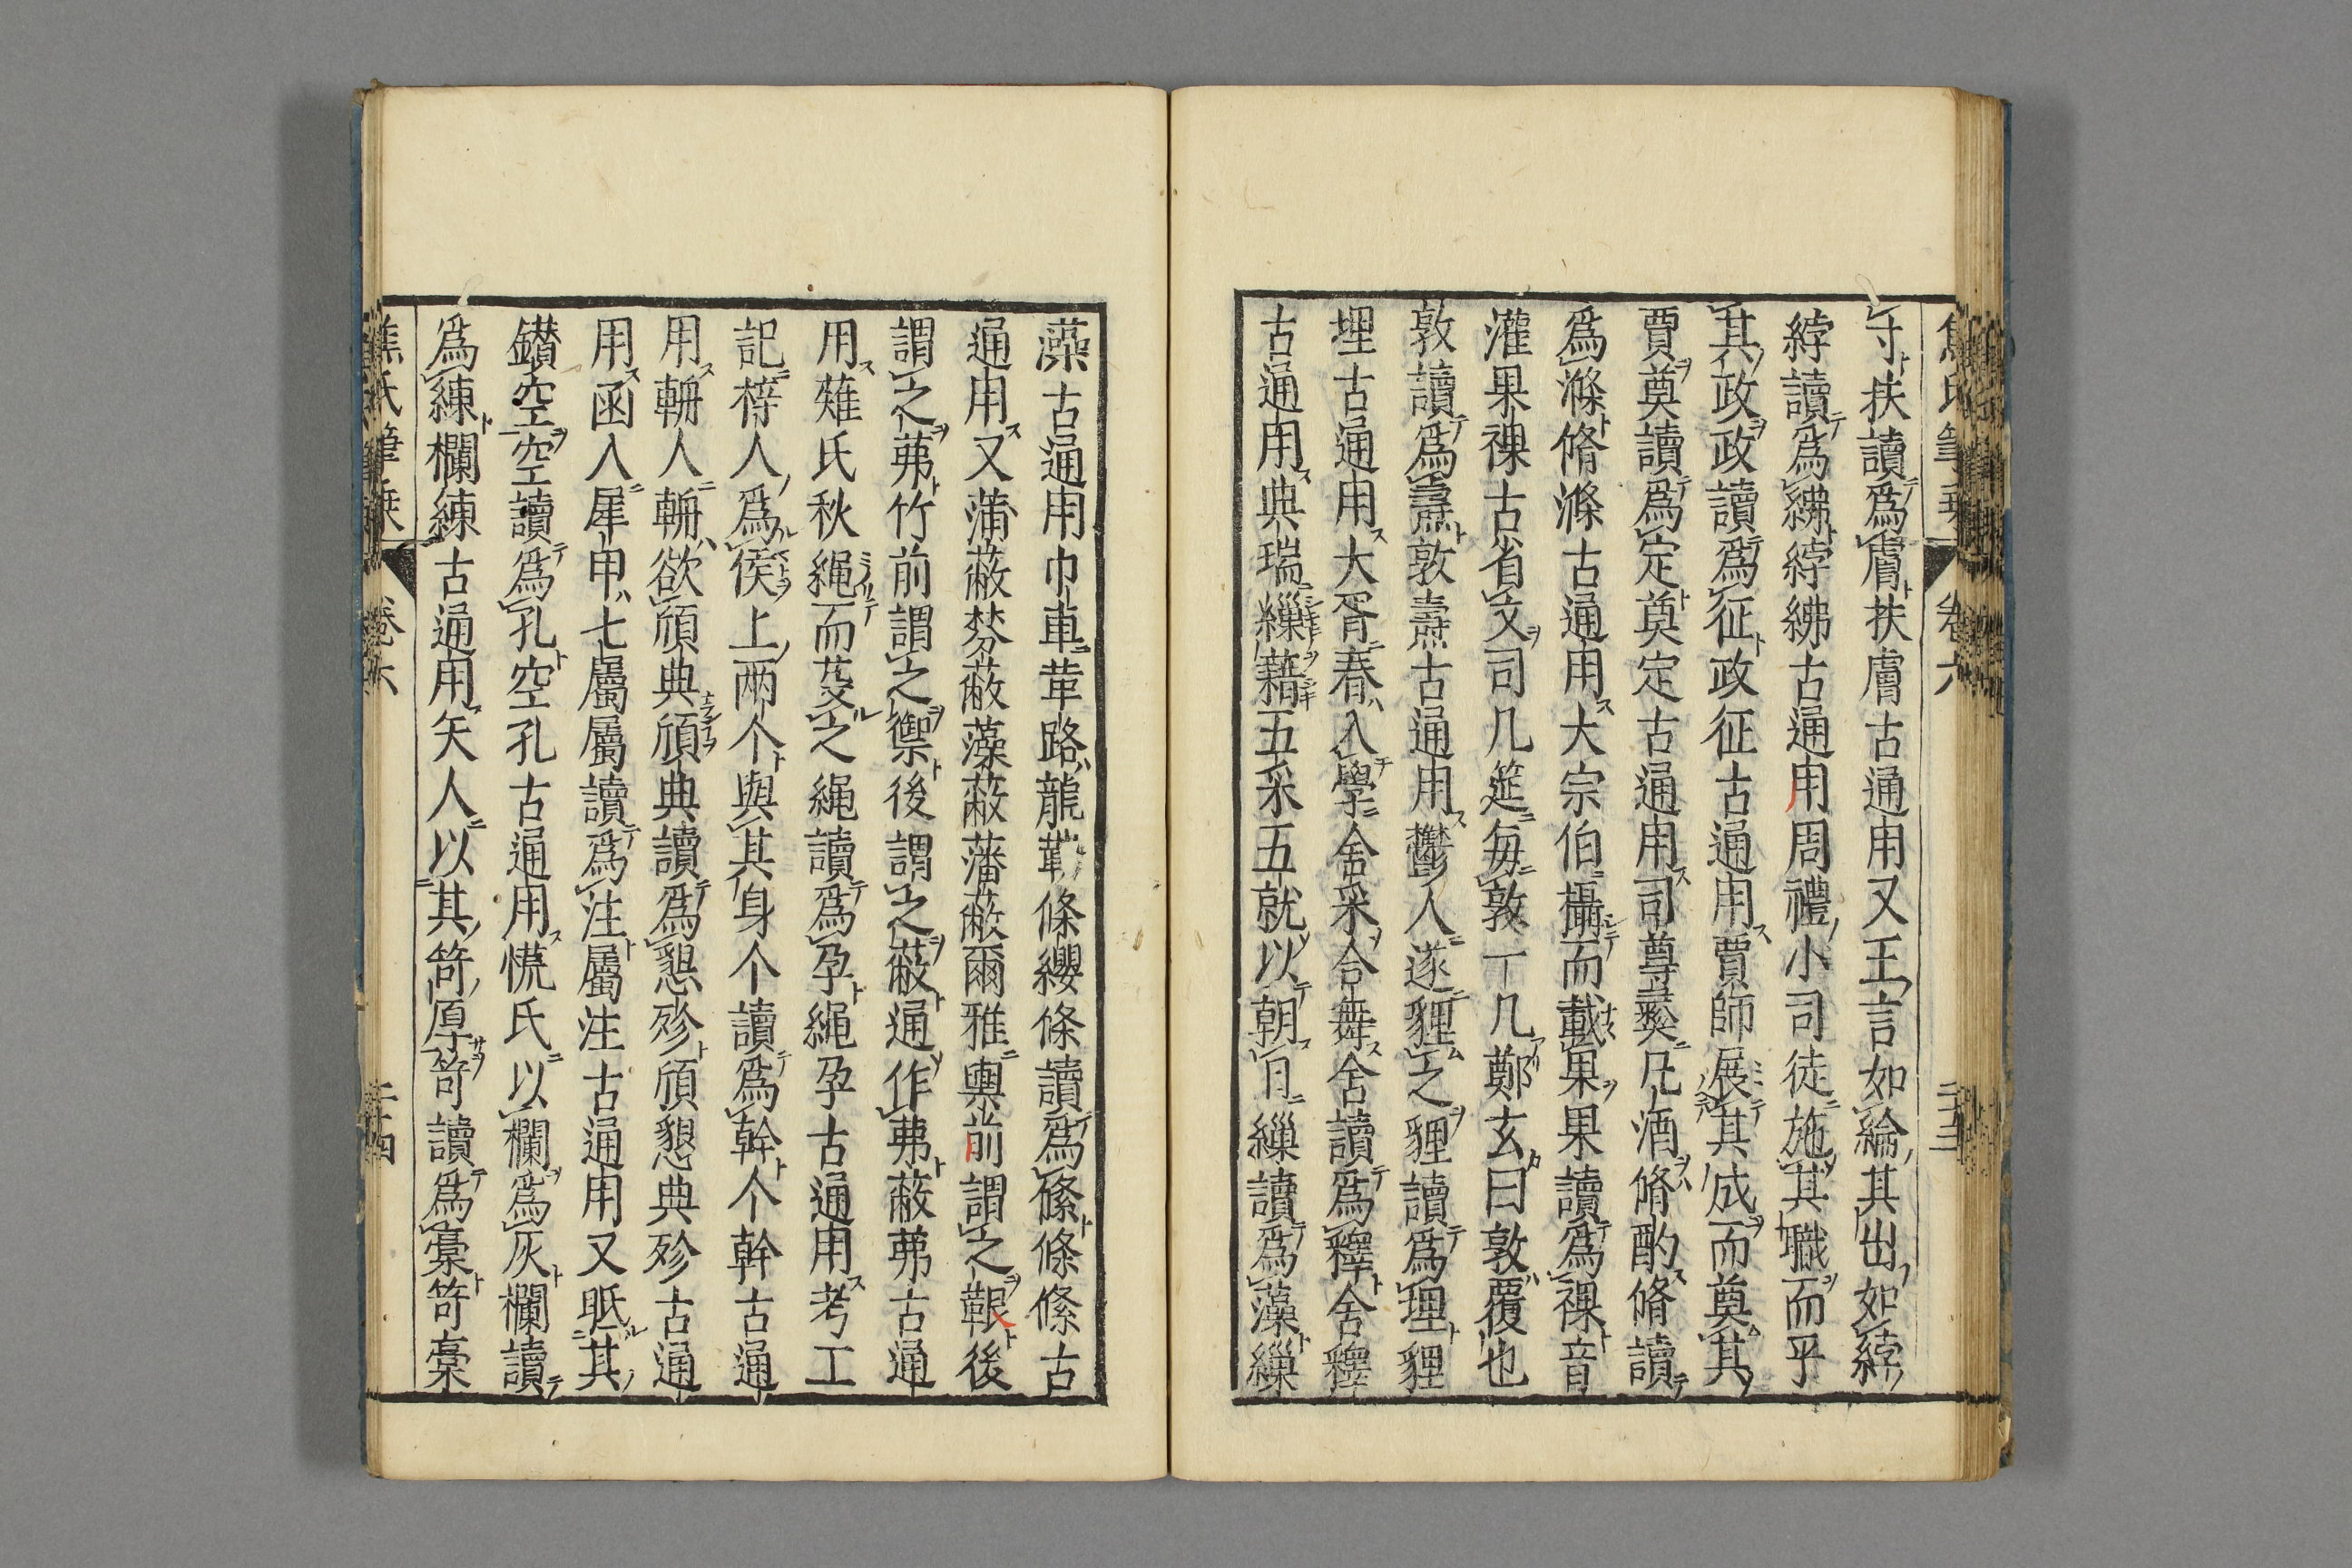 寸扶讀爲膚扶膚古通用又王言如綸其出如綍
綍讀爲紼綍紼古通用周禮小司徒施其職而平
其政政讀爲征政征古通用賈師展其成而奠其
賈奠讀爲定奠定古通用司尊彝凡酒脩酌脩讀
爲滌脩滌古通用大宗伯攝而載果果讀爲祼音
灌果祼古省文司几筵每敦一几鄭玄曰敦覆也
敦讀爲燾敦燾古通用鬱人遂貍之貍讀爲埋貍
埋古通用大胥春入學舍采合舞舍讀爲釋舍釋
古通用典瑞繅藉五采五就以朝日繅讀爲藻繅
藻古通用巾車革路龍勒條纓條讀爲絛條絛古
通用又蒲蔽棼蔽藻蔽藩蔽爾雅輿前謂之鞎後
謂之茀竹前謂之禦後謂之蔽通作茀蔽茀古通
用薙氏秋繩而芟之繩讀爲孕繩孕古通用考工
記梓人爲侯上两个與其身个讀爲幹个幹古通
用輈人輈欲頎典頎典讀爲懇殄頎懇典殄古通
用函人犀甲七屬屬讀爲注屬注古通用又眡其
鑚空空讀爲孔空孔古通用㡛氏以欄爲灰欄讀
爲練欄練古通用矢人以其笴厚笴讀爲槀笴槀
焦氏筆乗 卷六 二十四